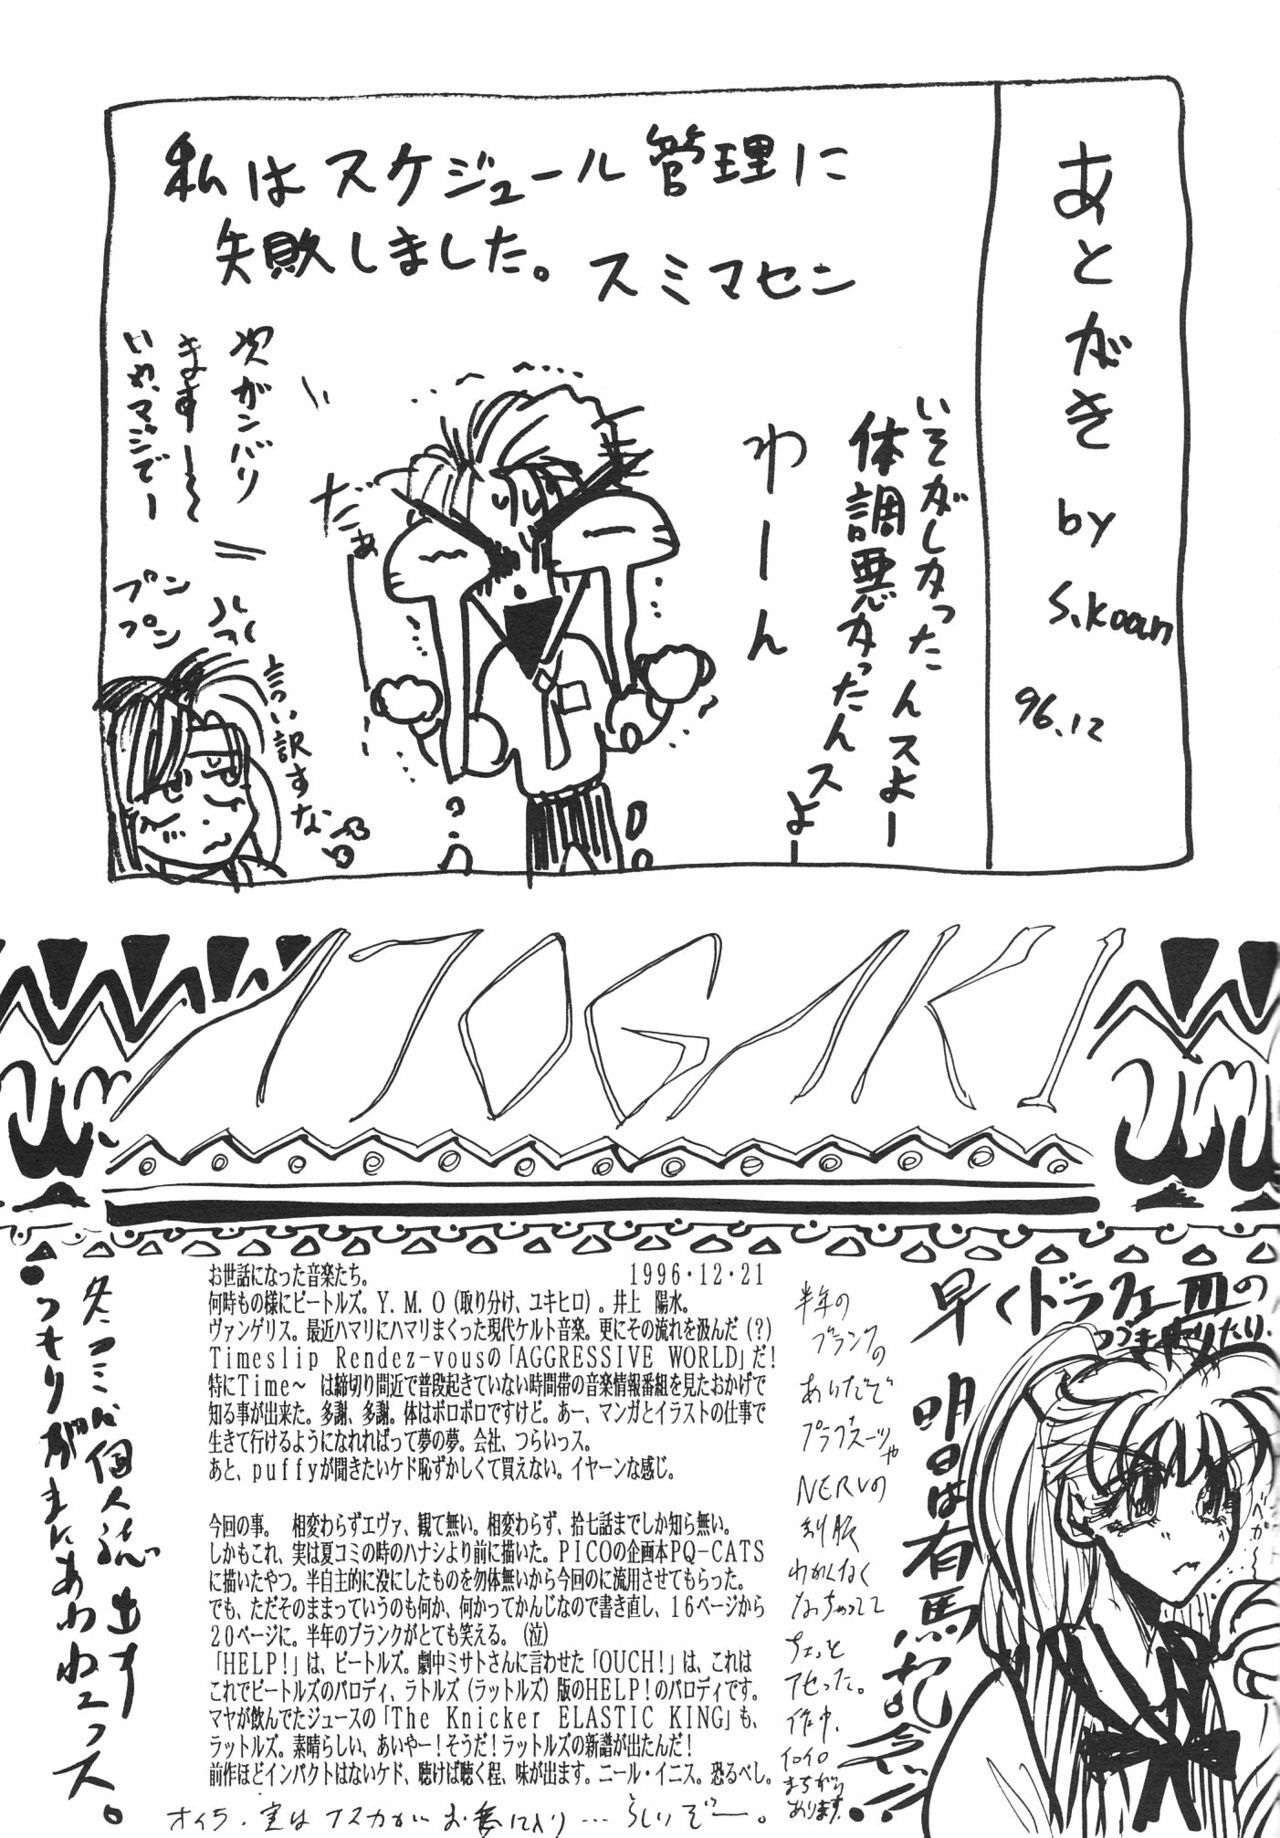 あとがき by
S.Koan
96.12
私はスケジュール管理に
失敗しました。スミマセン
いそがしかったんスよー
体調悪かったんスよー
わーん
だぁー
次ガンバリ
ます～～
いや、マジでー
プンプン
言い訳すな
ATOGAKI
お世話になった音楽たち。 1996・12・21
何時もの様にビートルズ。Y．M．O（取り分け、ユキヒロ）。井上 陽水。
ヴァンゲリス。最近ハマリにハマリまくった現代ケルト音楽。更にその流れを汲んだ（？）
Timeslip Rendez-vousの「AGGRESSIVE WORLD」だ！
特にTime～ は締切り間近で普段起きていない時間帯の音楽情報番組を見たおかげで
知る事が出来た。多謝、多謝。体はボロボロですけど。あー、マンガとイラストの仕事で
生きて行けるようになれればって夢の夢。会社、つらいっス。
あと、puffyが聞きたいケド恥ずかしくて買えない。イヤーンな感じ。
今回の事。 相変わらずエヴァ、観て無い。相変わらず、拾七話までしか知ら無い。
しかもこれ、実は夏コミの時のハナシより前に描いた。PICOの企画本PQ-CATS
に描いたやつ。半自主的に没にしたものを勿体無いから今回のに流用させてもらった。
でも、ただそのままっていうのも何か、何かってかんじなので書き直し、16ページから
20ページに。半年のブランクがとても笑える。（泣）
「HELP！」は、ビートルズ。劇中ミサトさんに言わせた「OUCH！」は、これは
これでビートルズのパロディ、ラトルズ（ラットルズ）版のHELP！のパロディです。
マヤが飲んでたジュースの「The Knicker ELASTIC KING」も、
ラットルズ。素晴らしい、あいやー！そうだ！ラットルズの新譜が出たんだ！
前作ほどインパクトはないケド、聴けば聴く程、味が出ます。ニール・イニス。恐るべし。
オイラ、実はアスカがお気に入り…らしいぞー。
半年の
ブランクの
あいだで
プラグスーツや
NERVの
制服
わかんなく
なっちゃってて
ちょっと
アセった。
作中、
イロイロ
まちがい
あります。
早くドラフェⅢの
つづきやりたい。
明日は有馬記念!!
冬コミに個人誌出す
つもりがまにあわねェっス。